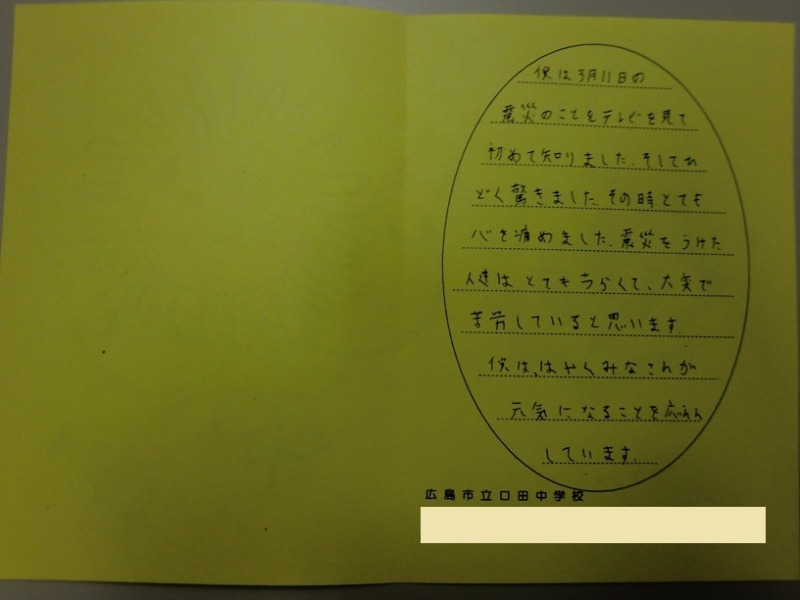 僕は3月11日の
震災のことをテレビを見て
初めて知りました。そしてひ
どく驚きました。その時とても
心を痛めました。震災をうけた
人達はとてもつらくて、大変で
苦労していると思います。
僕は、はやくみなさんが
元気になることを応えん
しています。
広島市立口田中学校